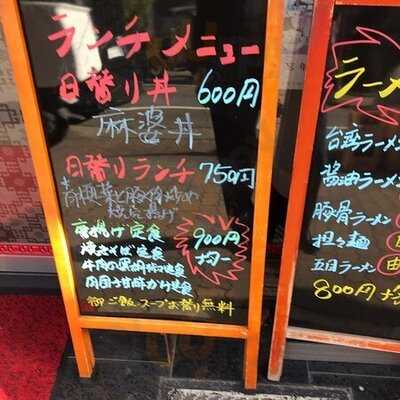 ランチメニュー
日替り丼 600円
麻婆丼
日替りランチ 750円
唐揚げ定食
焼きそば定食
900円
肉団子甘酢かけ定食
御ご飯、スープお替り無料
ラーメ
台湾ラーメン
醤油ラーメン
豚骨ラーメン
担々麺
五目ラーメン
800円